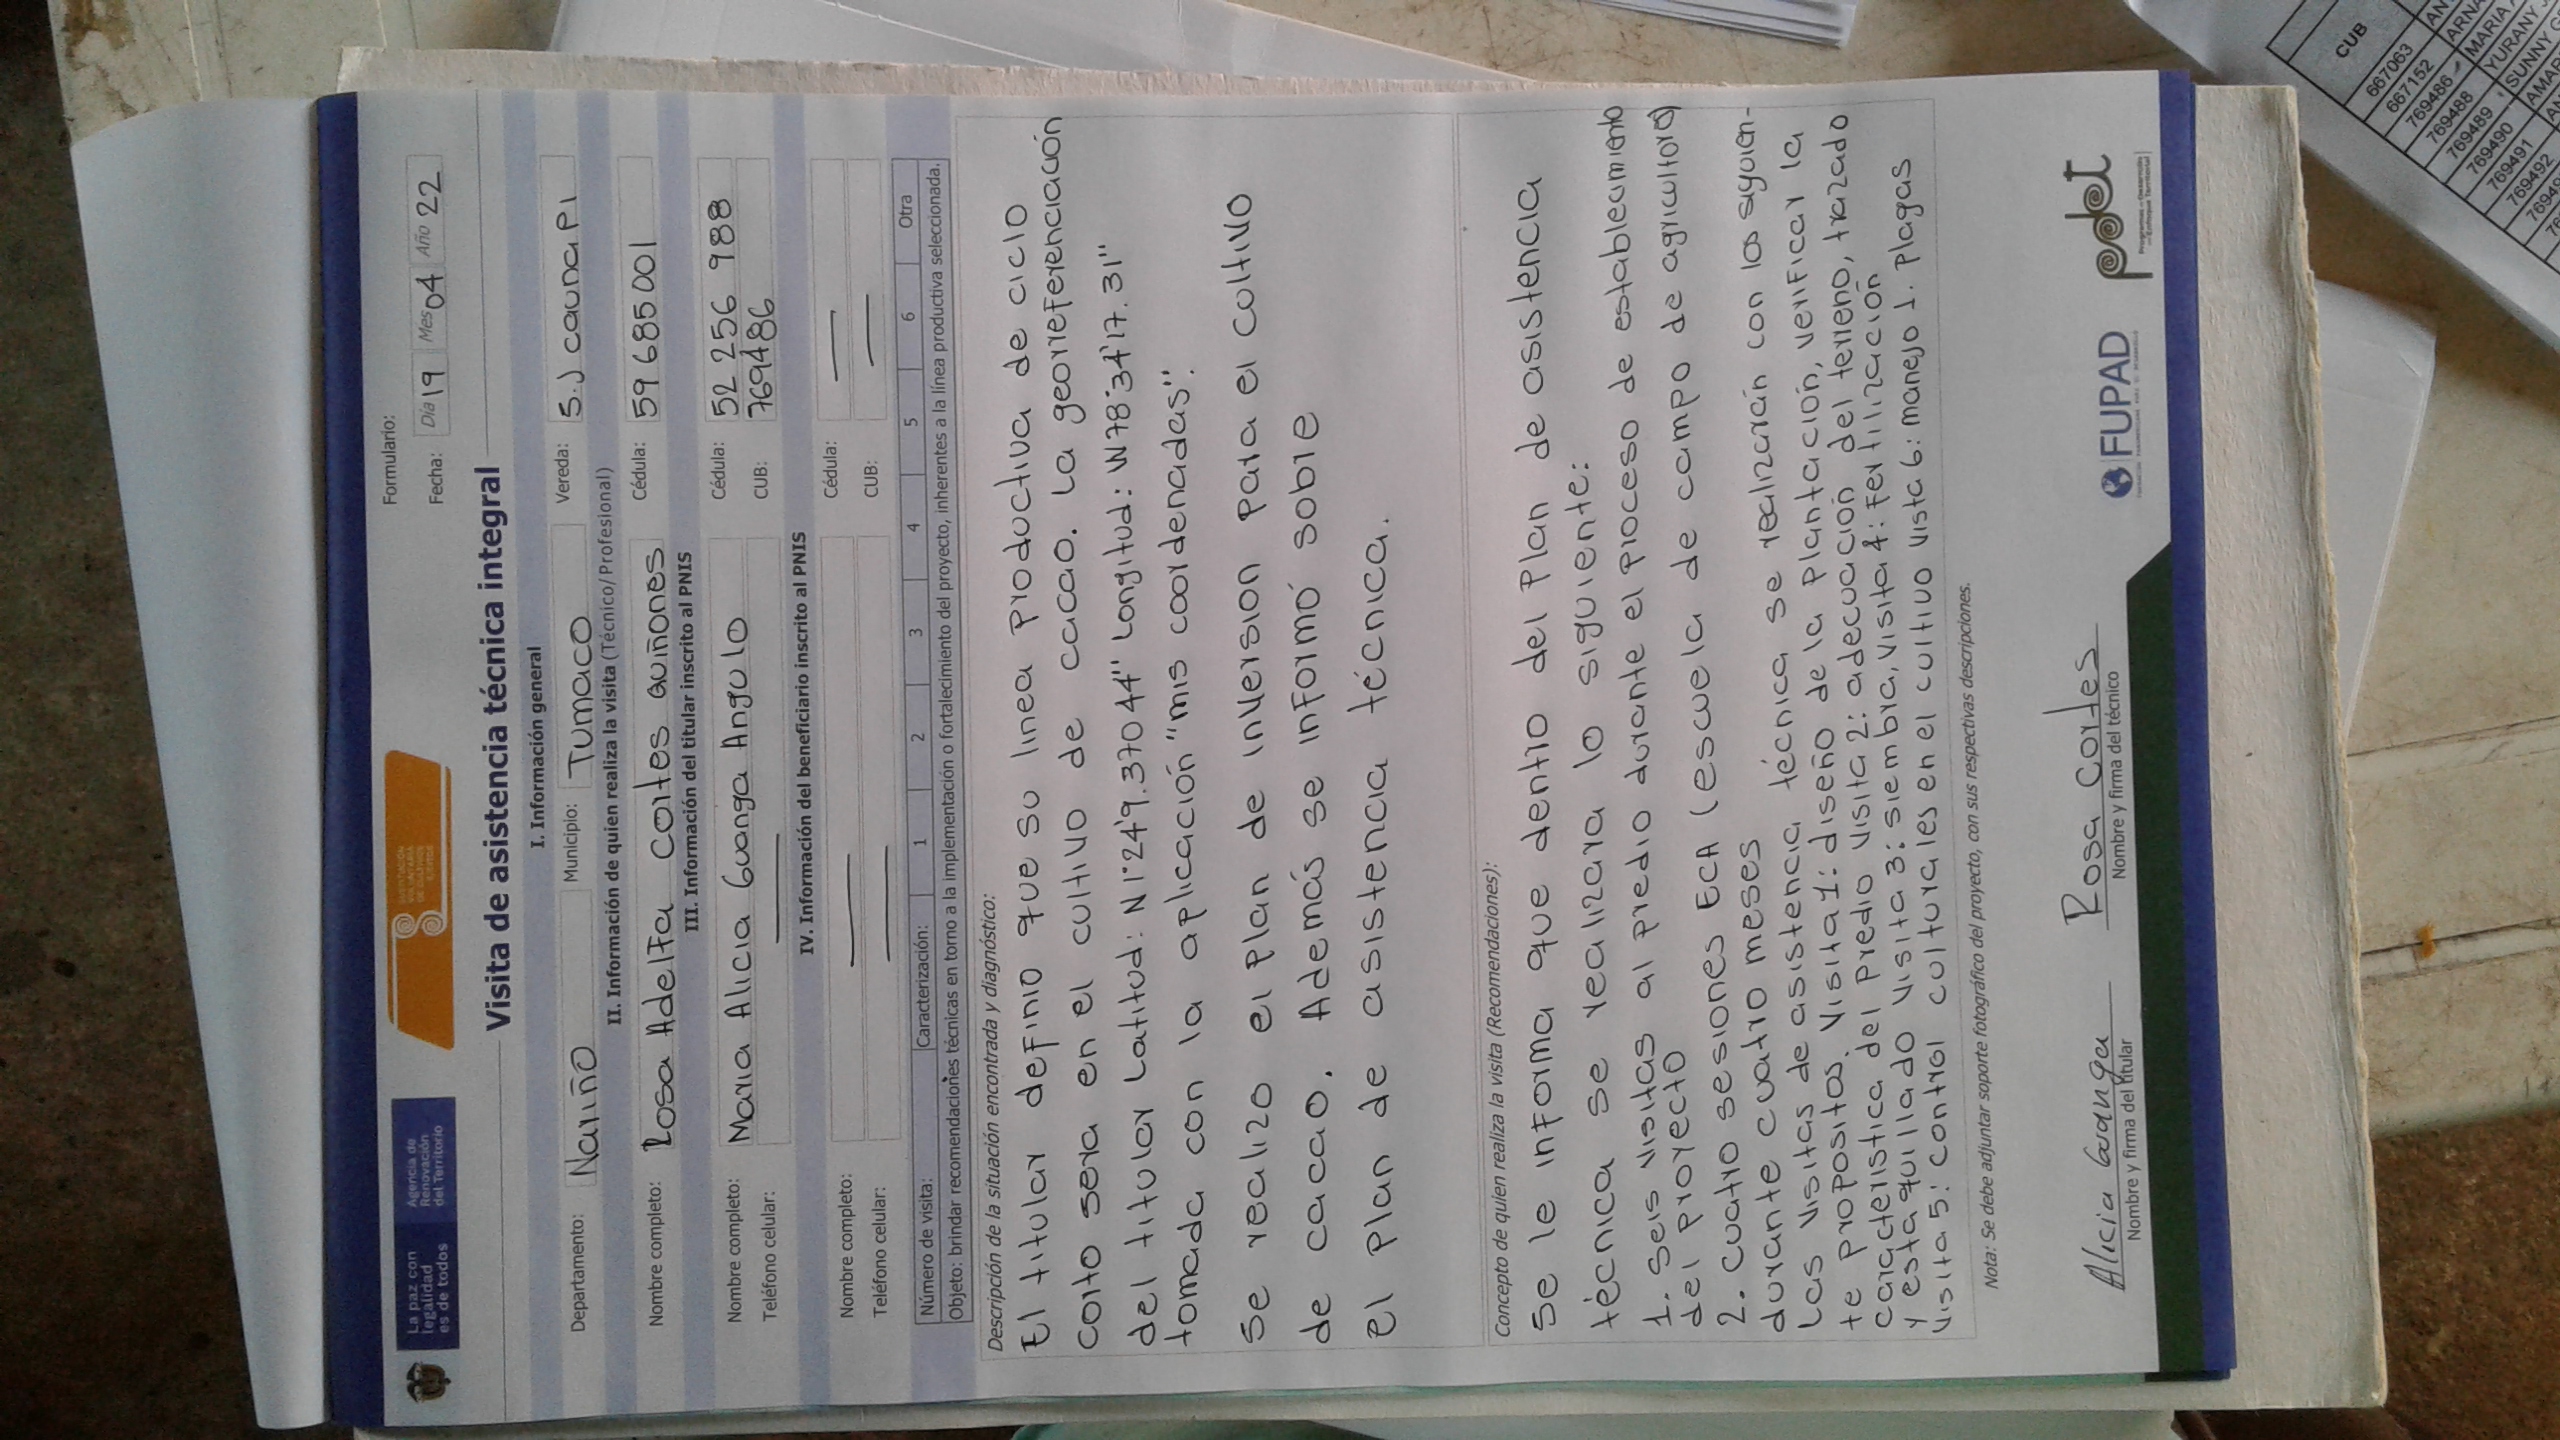 La paz con
legalidad
es de todos
Agencia de
Renovación
del Territorio
SUSTITUCIÓN
VOLUNTARIA
DE CULTIVOS
ILÍCITOS
Formulario:
Fecha: Día 19 Mes 04 Año 22
Visita de asistencia técnica integral
I. Información general
Departamento: Nariño Municipio: Tumaco Vereda: S.J caunapi
II. Información de quien realiza la visita (Técnico/Profesional)
Nombre completo: Rosa Adelfa Cortes Quiñones Cédula: 59 685 001
III. Información del titular inscrito al PNIS
Nombre completo: Maria Alicia Guanga Angulo Cédula: 52 256 988
Teléfono celular: — CUB: 769486
IV. Información del beneficiario inscrito al PNIS
Nombre completo: — Cédula: —
Teléfono celular: — CUB: —
Número de visita: Caracterización: 1 2 3 4 5 6 Otra
Objeto: brindar recomendaciones técnicas en torno a la implementación o fortalecimiento del proyecto, inherentes a la línea productiva seleccionada.
Descripción de la situación encontrada y diagnóstico:
El titular definio que su linea productiva de ciclo
corto sera en el cultivo de cacao. La georreferenciación
del titular Latitud: N1°24'9.37044" Longitud: W78°34'17.31"
tomada con la aplicación "mis coordenadas".
Se realizo el plan de inversion para el cultivo
de cacao. Además se informó sobre
el plan de asistencia técnica.
Concepto de quien realiza la visita (Recomendaciones):
Se le informa que dentro del plan de asistencia
técnica se realizara lo siguiente:
1. Seis visitas al predio durante el proceso de establecimiento
del proyecto
2. cuatro sesiones ECA (escuela de campo de agricultores)
durante cuatro meses
Las visitas de asistencia técnica se realizarán con los siguien-
te propositos. Visita 1: diseño de la plantación, verificar la
caracteristica del predio visita 2: adecuación del terreno, trazado
y estaquillado visita 3: siembra, visita 4: fertilización
visita 5: control culturales en el cultivo vista 6: manejo 1. Plagas
Nota: Se debe adjuntar soporte fotográfico del proyecto, con sus respectivas descripciones.
Alicia Guanga
Nombre y firma del titular
Rosa Cortes
Nombre y firma del técnico
FUPAD
pdet
Programas de Desarrollo
con Enfoque Territorial
CUB
667063 AN
667152 ARNA
769486 MARIA
769488 YURANY
769489 SUNNY
769490 AMAR
769491
769492